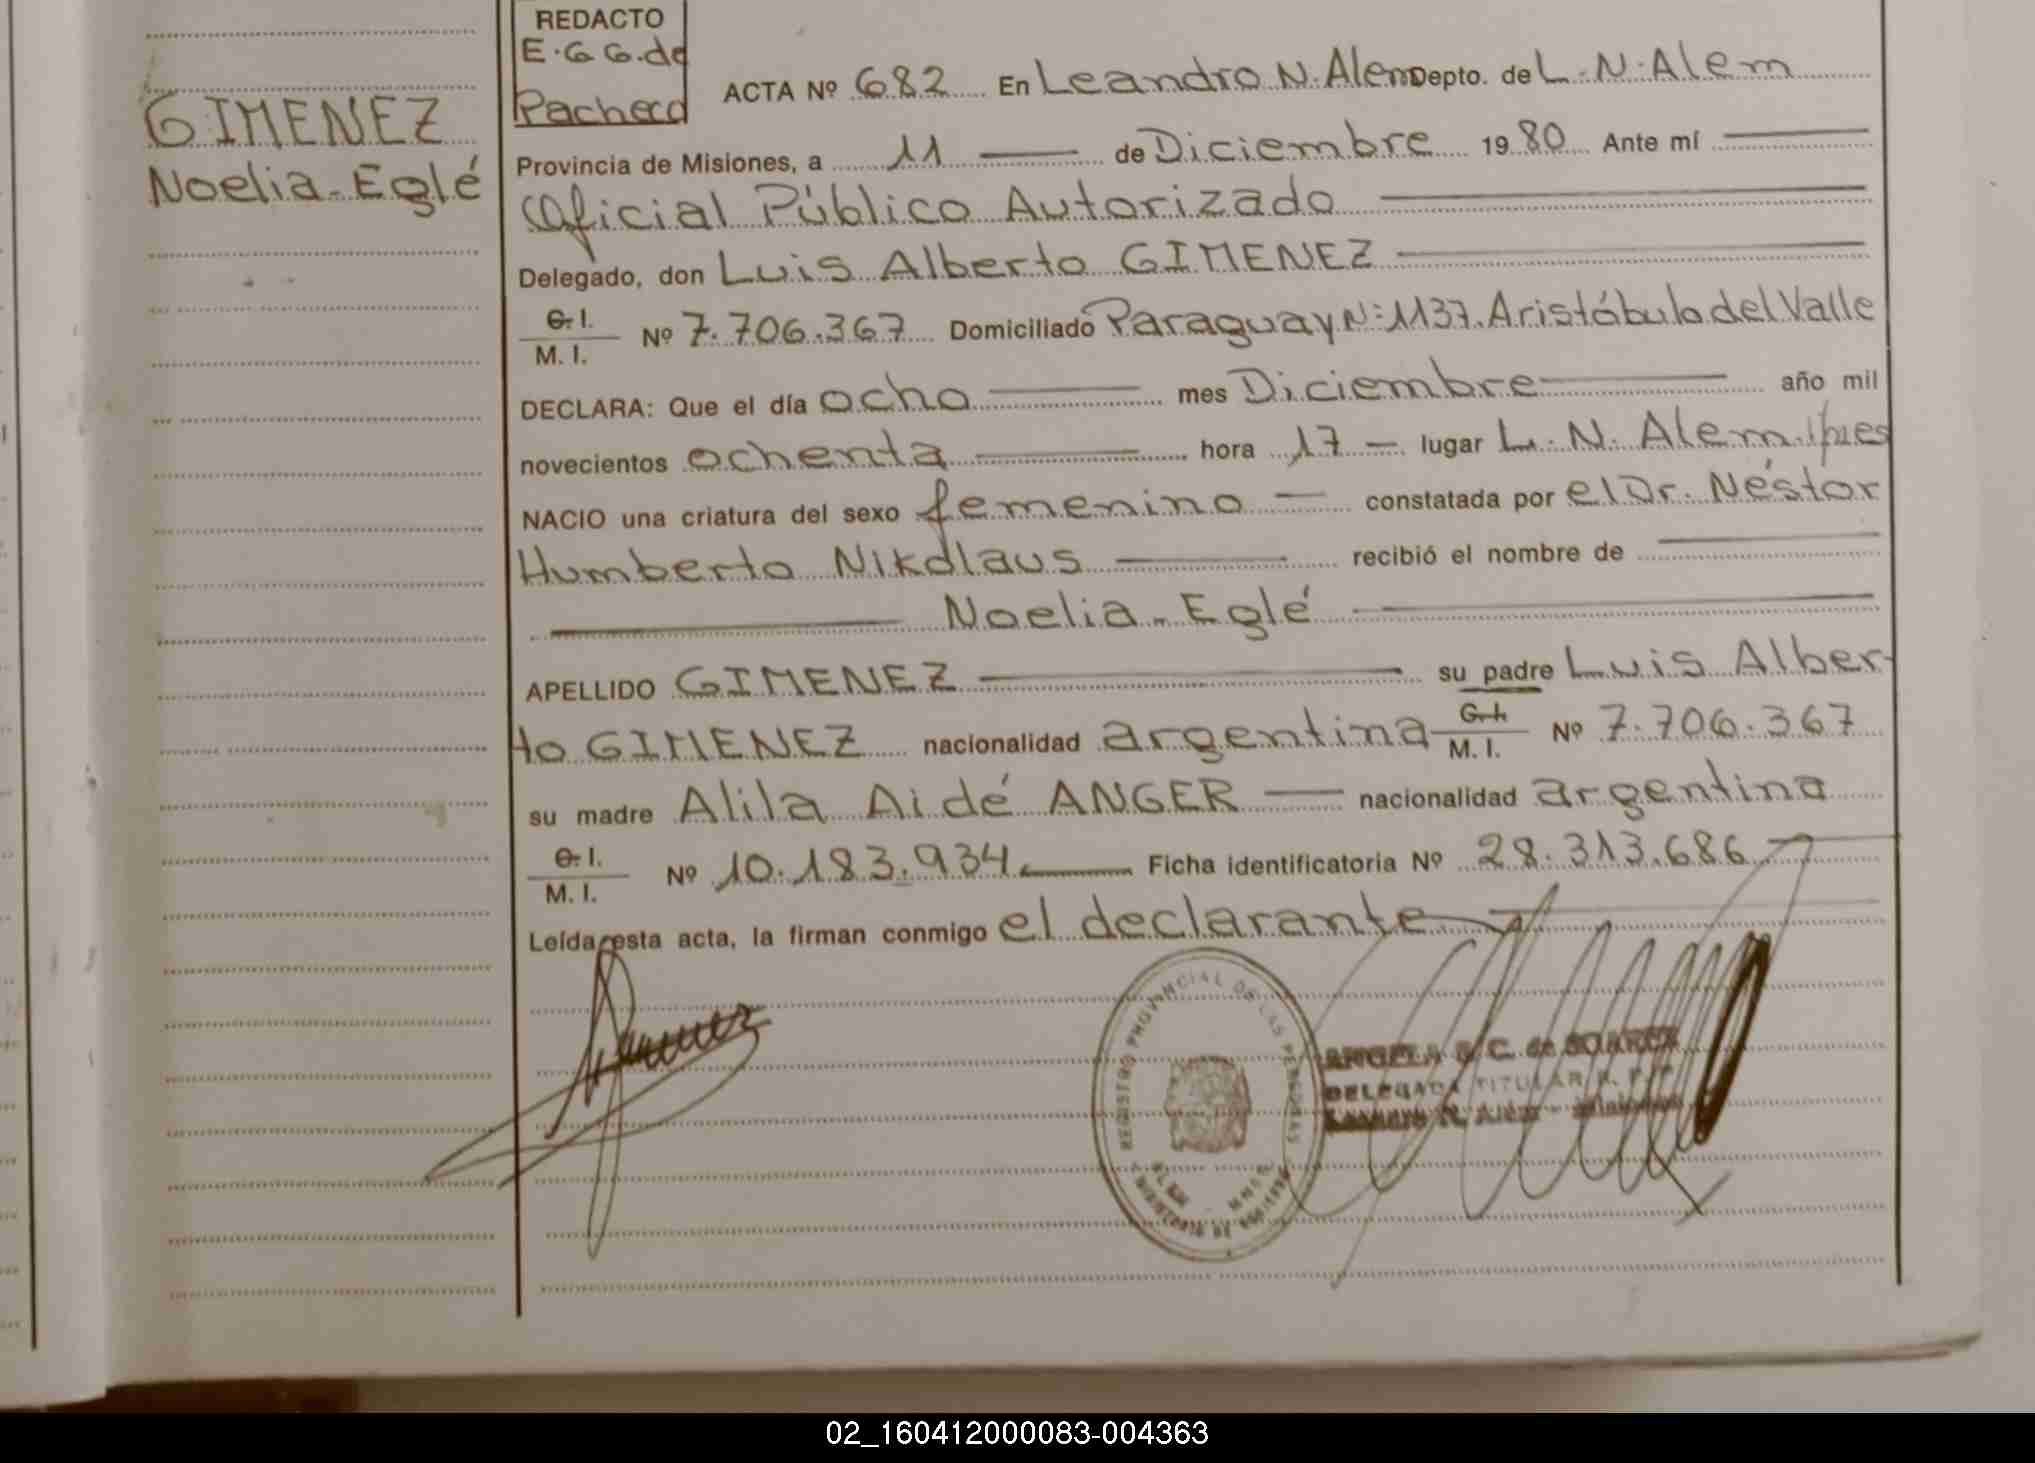 GIMENEZ
Noelia-Eglé
REDACTO
E.G G.de
Pacheco
ACTA Nº 682 En Leandro N. Alem Depto. de L.N. Alem
Provincia de Misiones, a 11 — de Diciembre 19 80 Ante mí
Oficial Público Autorizado
Delegado, don Luis Alberto GIMENEZ
C. I.
M. I. Nº 7.706.367 Domiciliado Paraguay Nº 1137. Aristóbulo del Valle
DECLARA: Que el día ocho — mes Diciembre — año mil
novecientos ochenta — hora 17 — lugar L. N. Alem
NACIO una criatura del sexo femenino — constatada por el Dr. Néstor
Humberto Nikolaus — recibió el nombre de
— Noelia-Eglé —
APELLIDO GIMENEZ — su padre Luis Alber-
to GIMENEZ nacionalidad argentina C. I.
M. I. Nº 7.706.367
su madre Alila Aidé ANGER — nacionalidad argentina
C. I.
M. I. Nº 10.183.934 — Ficha identificatoria Nº 28.313.686
Leída esta acta, la firman conmigo el declarante
REGISTRO PROVINCIAL DE LAS PERSONAS
MINISTERIO DE GOBIERNO
ANGELA C. de SOAREZ
DELEGADA TITULAR R. P. P.
Leandro N. Alem - Misiones
02_160412000083-004363